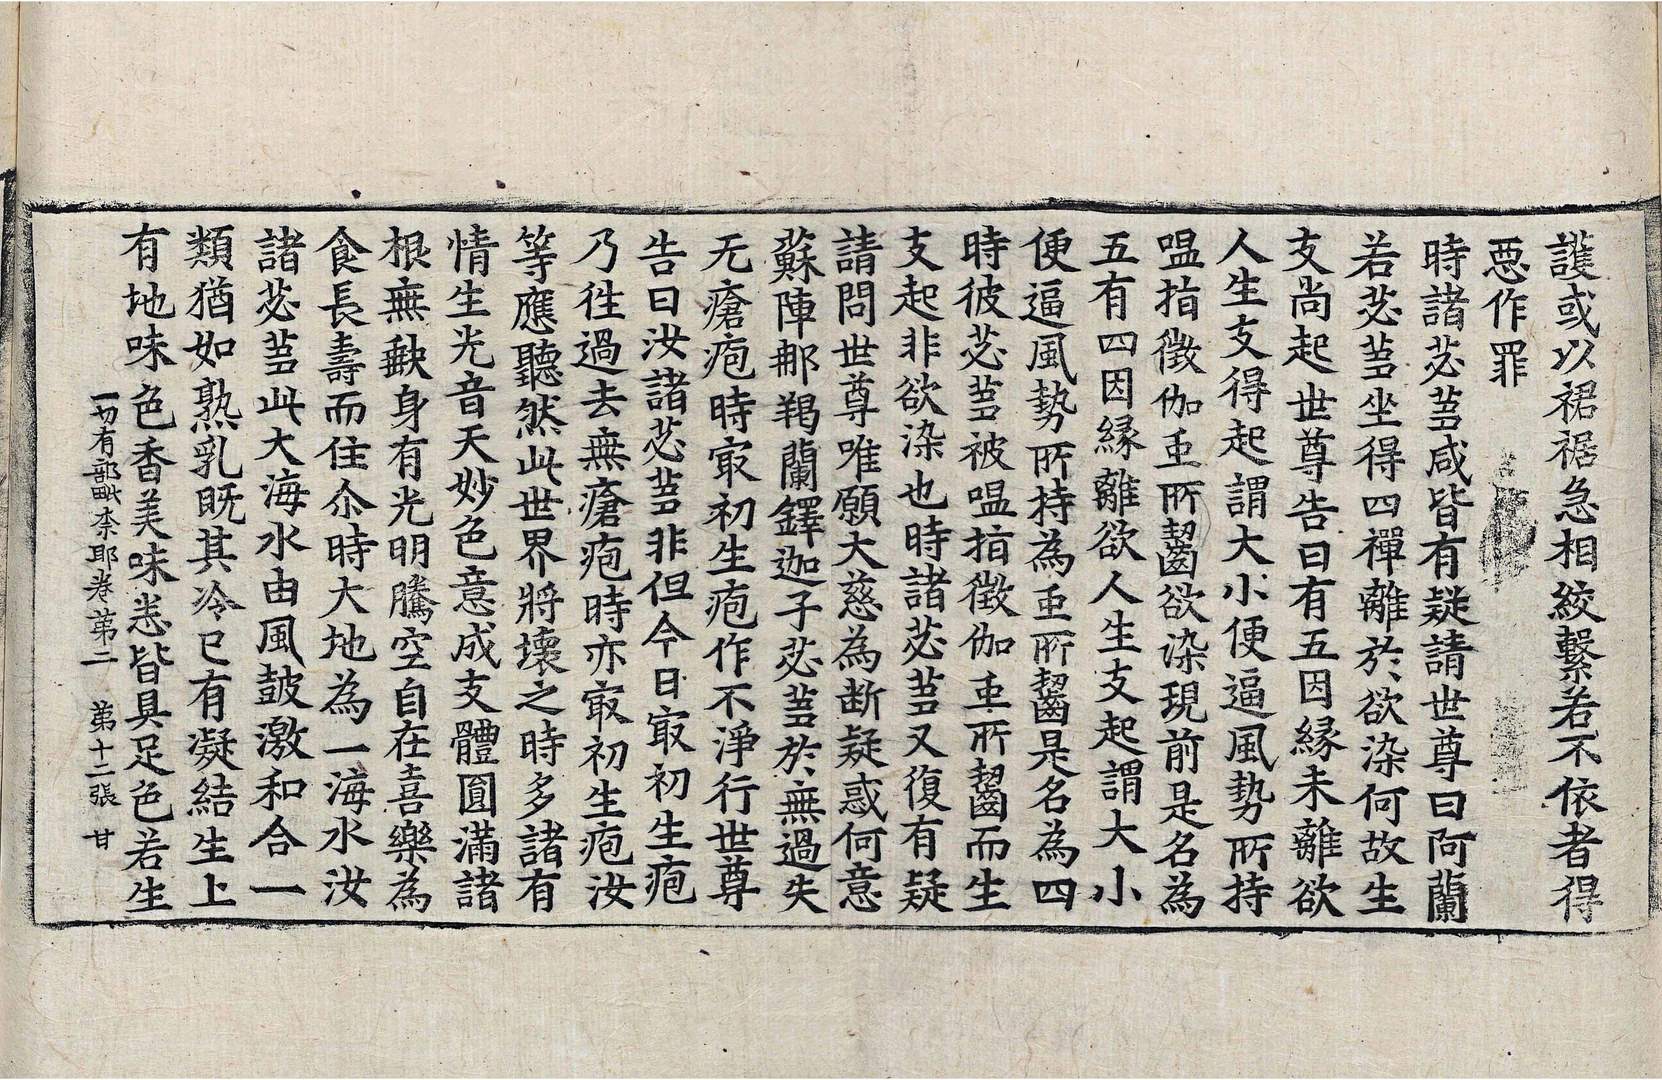 護或以裙裾急相絞繫若不依者得
惡作罪
時諸苾芻咸皆有疑請世尊曰阿蘭
若苾芻坐得四禪離於欲染何故生
支尚起世尊告曰有五因緣未離欲
人生支得起謂大小便逼風勢所持
嗢指徵伽虫所齧欲染現前是名為
五有四因緣離欲人生支起謂大小
便逼風勢所持為虫所齧是名為四
時彼苾芻被嗢指徵伽虫所齧而生
支起非欲染也時諸苾芻又復有疑
請問世尊唯願大慈為断疑惑何意
蘇陣那羯蘭鐸迦子苾芻於無過失
无瘡疱時㝡初生疱作不淨行世尊
告曰汝諸苾芻非但今日㝡初生疱
乃徃過去無瘡疱時亦㝡初生疱汝
等應聽然此世界將壞之時多諸有
情生光音天妙色意成支體圓滿諸
根無缺身有光明騰空自在喜樂為
食長壽而住尒時大地為一海水汝
諸苾芻此大海水由風鼓激和合一
類猶如熟乳既其冷已有凝結生上
有地味色香美味悉皆具足色若生
一切有部毗奈耶卷第二　第十二張　甘